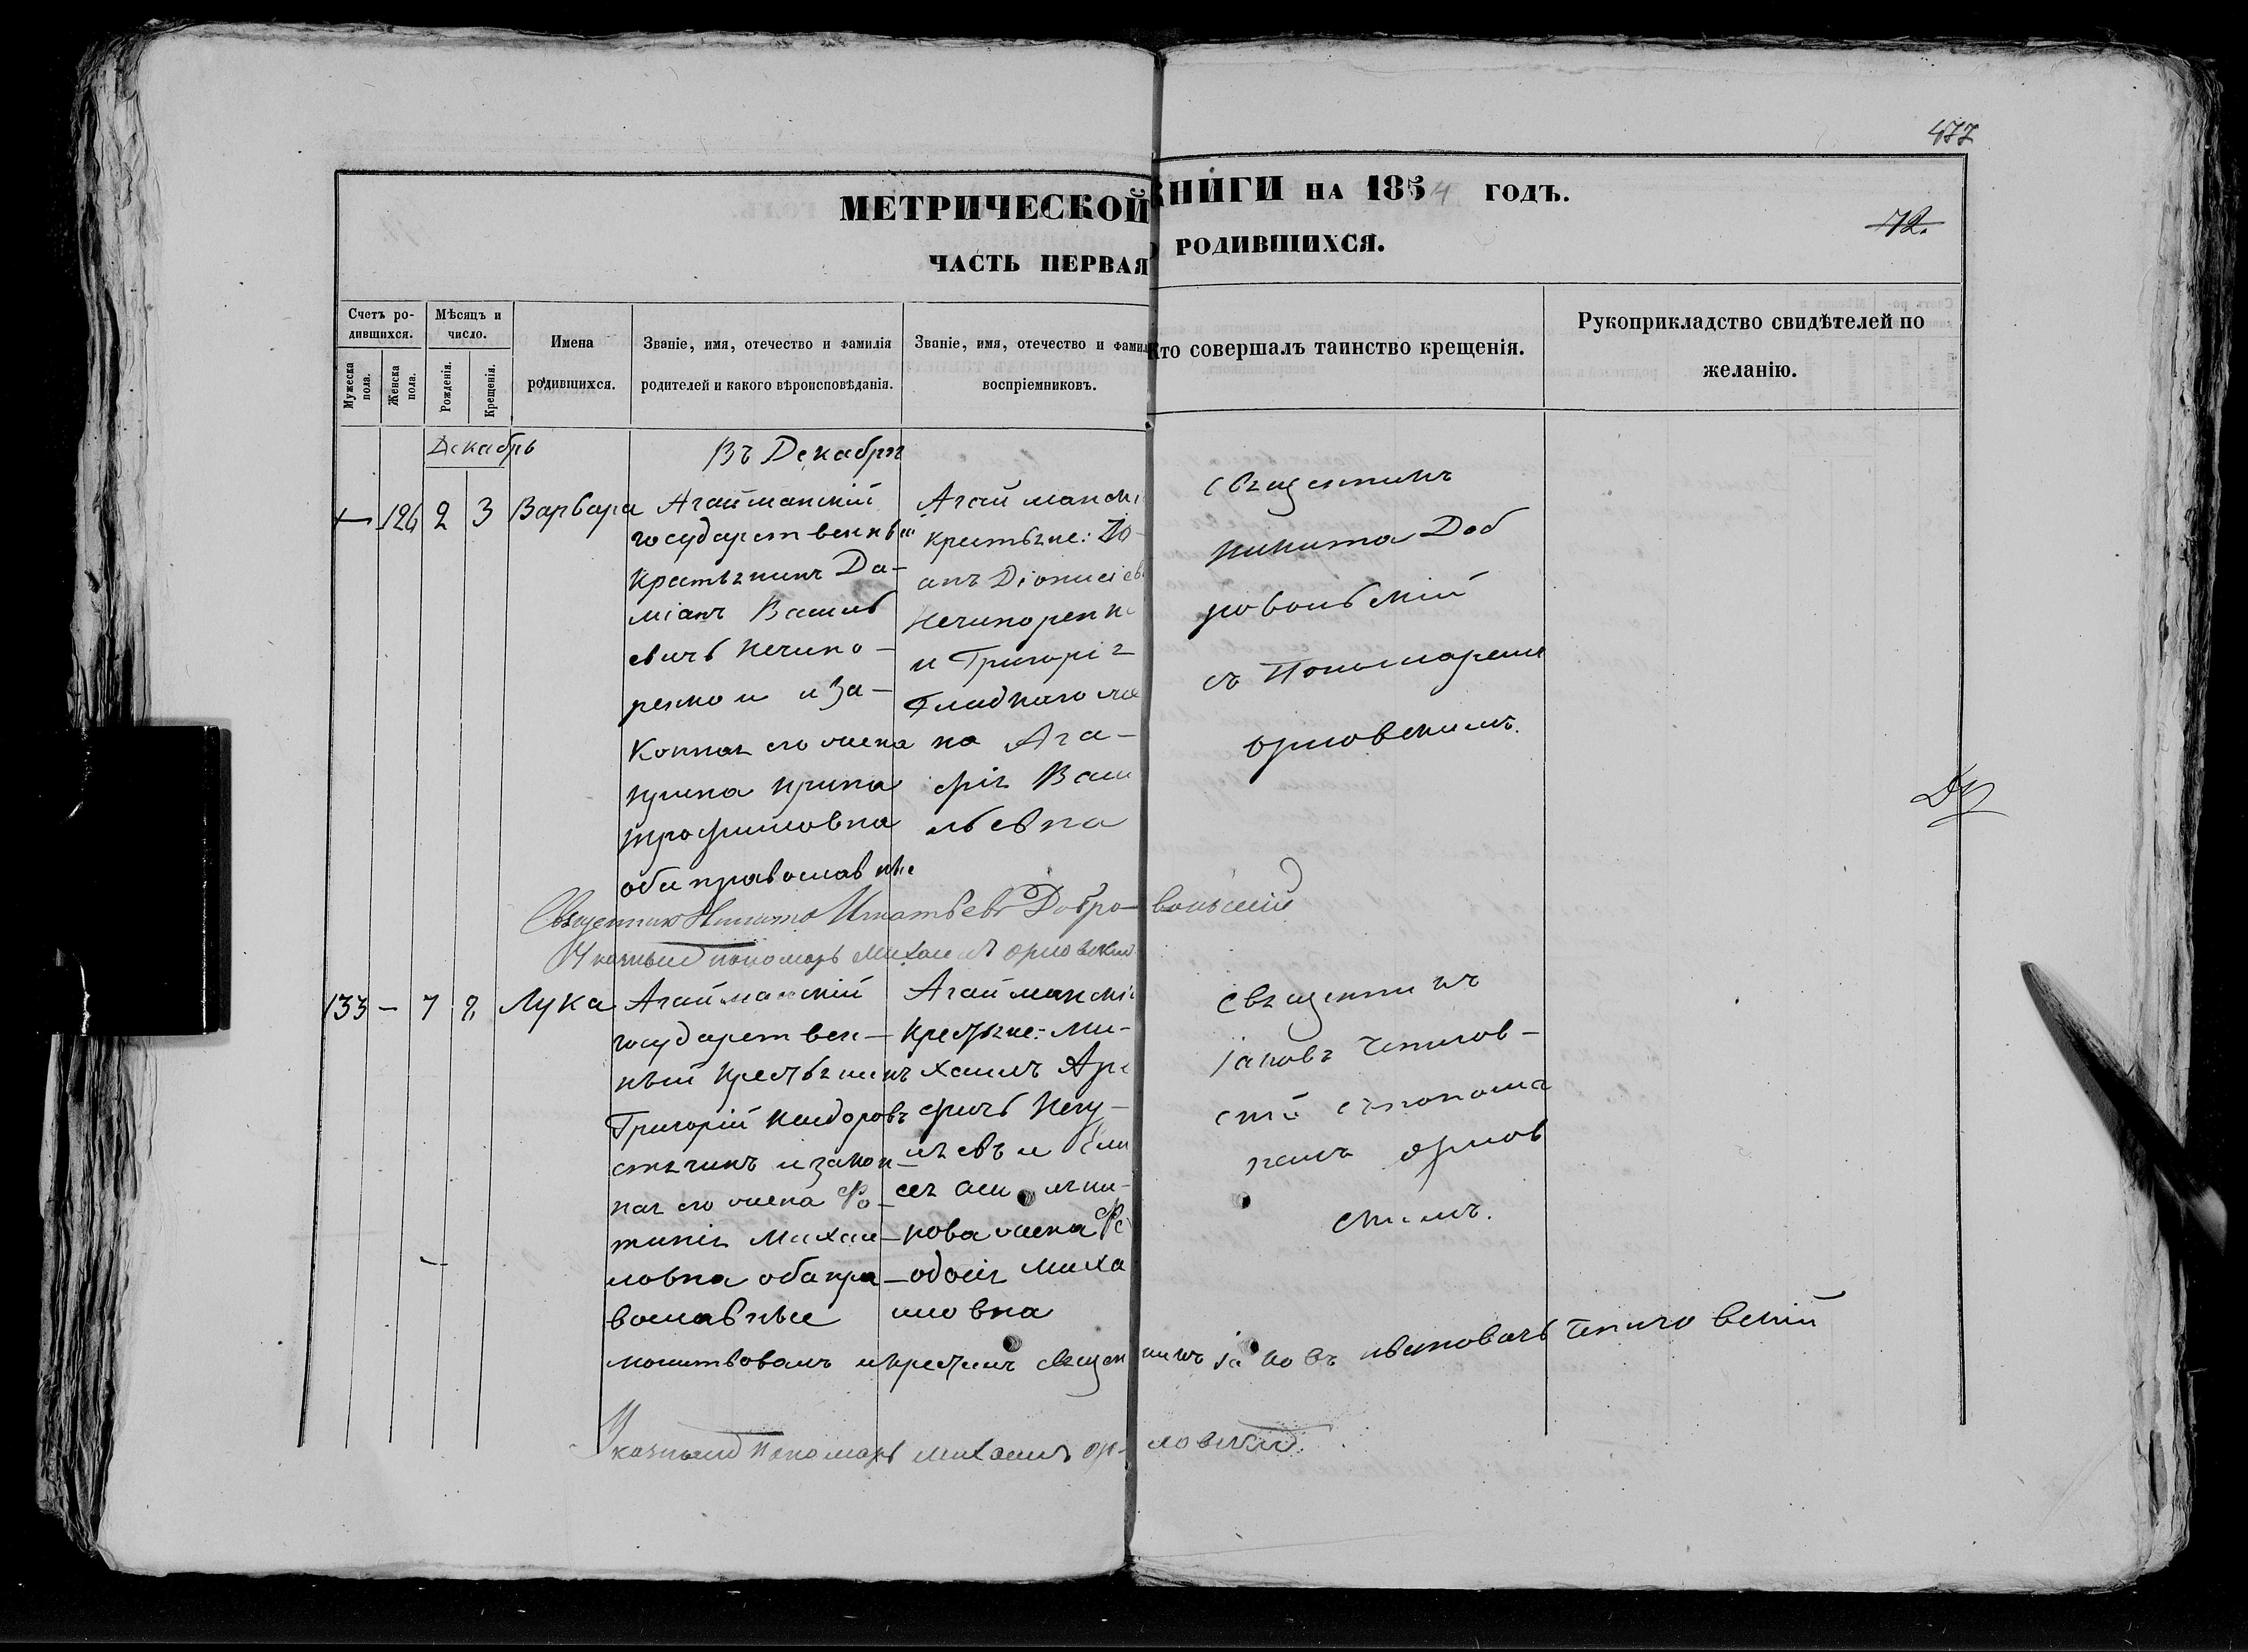 477
МЕТРИЧЕСКОЙ КНИГИ НА 1854 ГОДЪ.
72.
ЧАСТЬ ПЕРВАЯ РОДИВШИХСЯ.
Счетъ ро-
дившихся.
Мужеска
пола.
Женска
пола.
Мѣсяцъ и
число.
Рожденія.
Крещенія.
Имена
родившихся.
Званіе, имя, отечество и фамилія
родителей и какого вѣроисповѣданія.
Званіе, имя, отечество и фамил
воспріемниковъ.
Кто совершалъ таинство крещенія.
Рукоприкладство свидѣтелей по
желанію.
Декабрь
Въ Декабрѣ
— 126 2 3 Варвара
Агайманскій
государственный
крестьянинъ Да-
міанъ Василь
евичъ Нечипо-
ренко и за-
конная его жена
Ирина
Трофимовна
оба православные
Агайманскі
крестьяне: Іо-
анъ Діонисіев
Нечипоренк
и Григорія
Гладкаго же
на Ага-
фія Васи
льевна
Священникъ
Никита Доб
ровольскій
съ Пономаремъ
Орловскимъ.
Священник Никита Игнатьевъ Добро-вольскій
Указный пономарь Михаилъ Орловскій
133 — 7 Лука
Агайманскій
государствен-
ный крестьянинъ
Григорій
и закон-
ная его жена Фо-
тинія Михаи-
ловна оба пра-
вославные
Агайманскі
крестьяне: Ми-
хаилъ
и Ели
рова жена Фе
одосія Миха
иловна
Священникъ
Іаковъ
скій съ понома
ремъ Орлов
скимъ.
молитвовалъ и крестилъ священникъ Іаковъ
Указный пономарь Михаилъ Ор-ловскій.